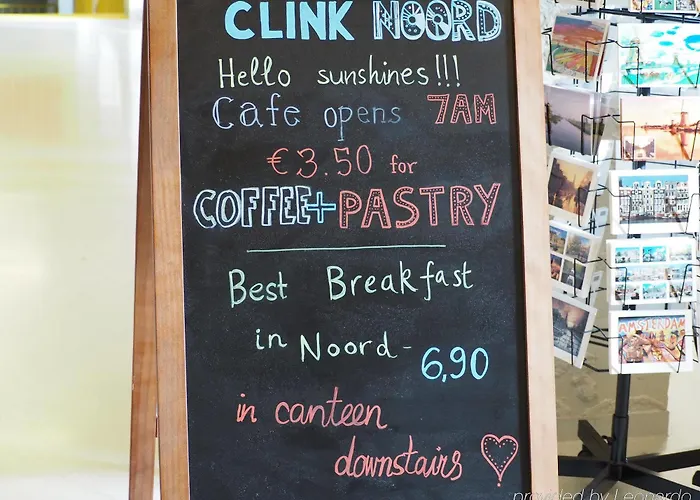 CLINK NOORD
Hello sunshines!!!
Cafe opens 7AM
€3.50 for
COFFEE+PASTRY
Best Breakfast
in Noord - 6,90
in canteen
downstairs
AMSTERDAM
provided by Leonardo